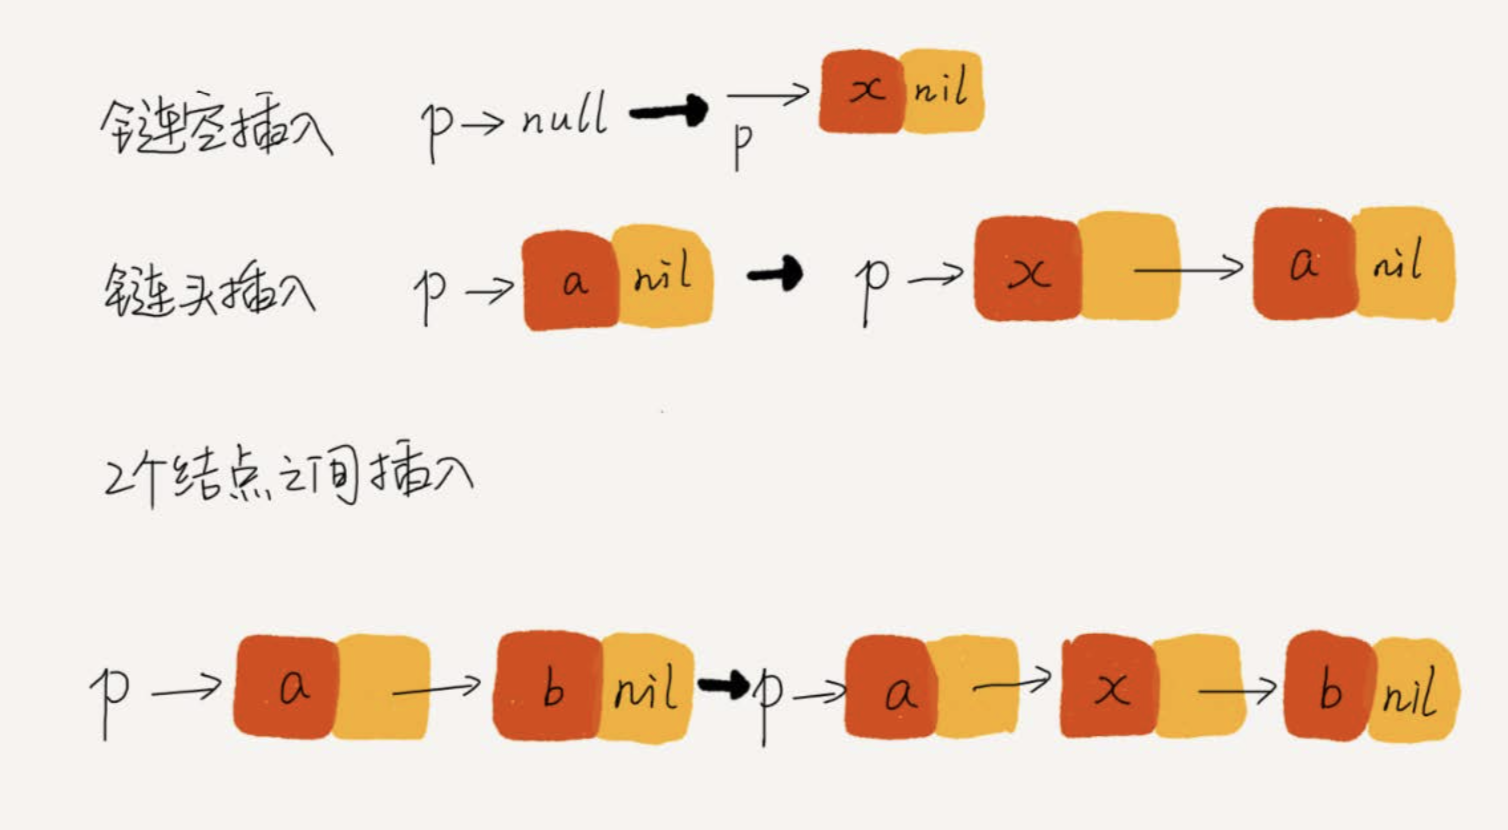 链空插入 p→null → p x nil
链头插入 p→ a nil → p→ x → a nil
2个结点之间插入
p→ a → b nil → p→ a → x → b nil